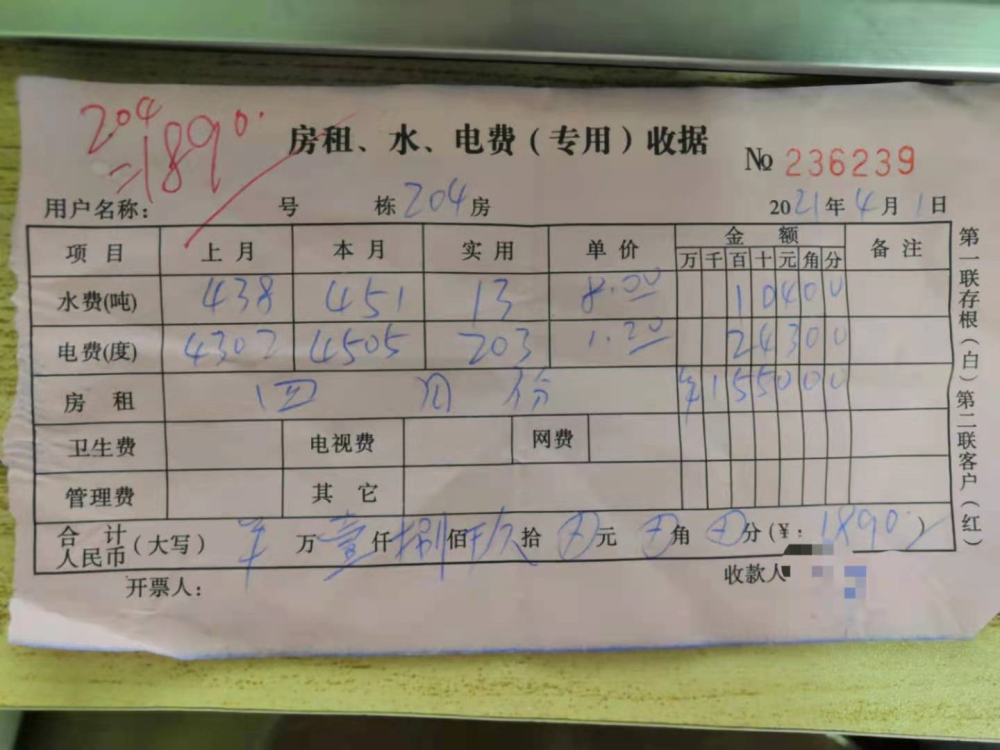 204
=1890.
房租、水、电费(专用)收据
№ 236239
用户名称： 号 栋 204 房 2021年4月1日
项目 上月 本月 实用 单价 金额 备注
万 千 百 十 元 角 分
水费(吨) 438 451 13 8.00 1 0 4 0 0
电费(度) 4302 4505 203 1.20 2 4 3 0 0
房租 四月份 ¥ 1 5 5 0 0 0
卫生费 电视费 网费
管理费 其它
合计人民币(大写) ¥万壹仟捌佰玖拾⊕元⊕角⊕分(¥：1890.)
开票人： 收款人
第一联存根(白)第二联客户(红)